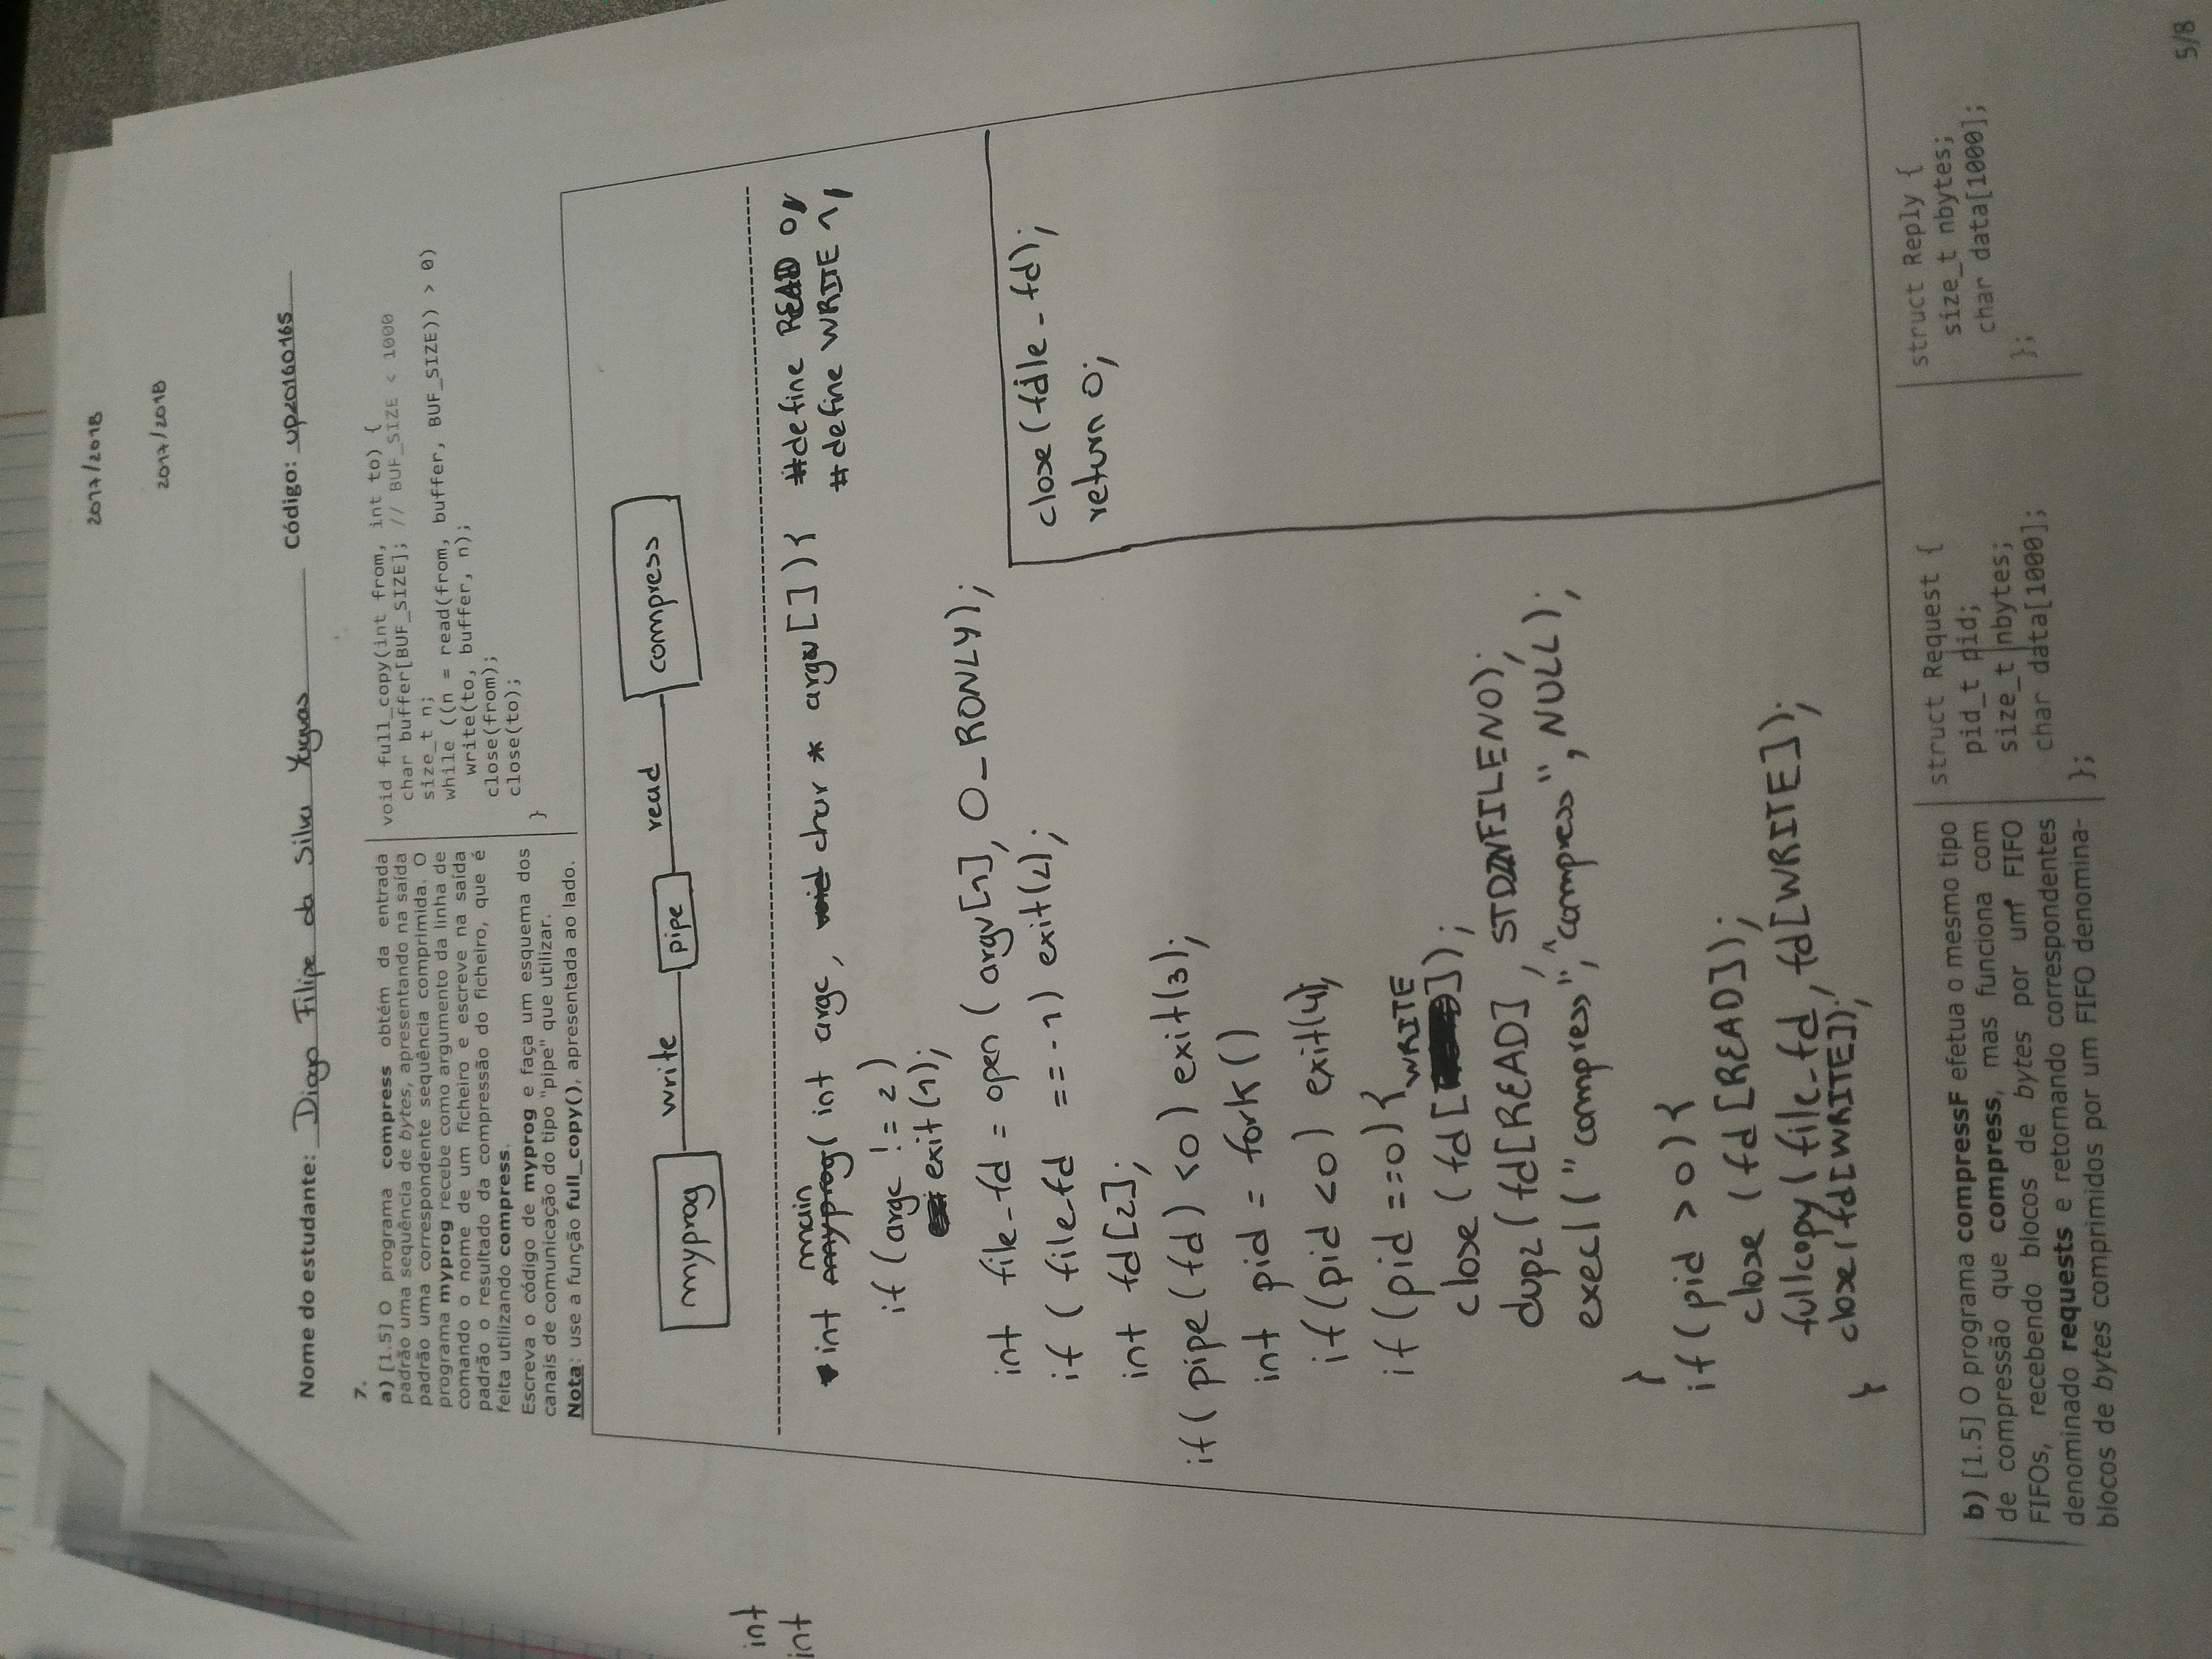 2017/2018
2017/2018
Nome do estudante: Diogo Filipe da Silva Yaguas Código: up201607165
7.
a) [1.5] O programa compress obtém da entrada
padrão uma sequência de bytes, apresentando na saída
padrão uma correspondente sequência comprimida. O
programa myprog recebe como argumento da linha de
comando o nome de um ficheiro e escreve na saída
padrão o resultado da compressão do ficheiro, que é
feita utilizando compress.
Escreva o código de myprog e faça um esquema dos
canais de comunicação do tipo "pipe" que utilizar.
Nota: use a função full_copy(), apresentada ao lado.
void full_copy(int from, int to) {
char buffer[BUF_SIZE]; // BUF_SIZE < 1000
size_t n;
while ((n = read(from, buffer, BUF_SIZE)) > 0)
write(to, buffer, n);
close(from);
close(to);
}
myprog write pipe read compress
int
int
#define READ 0,
#define WRITE 1,
int main(int argc, char * argv[]) {
if (argc != 2)
exit(1);
int file_fd = open (argv[1], O_RONLY);
if ( filefd == -1) exit(2);
int fd[2];
if ( pipe (fd) <0) exit(3);
int pid = fork()
if (pid <0) exit(4);
if (pid ==0) {
close (fd[WRITE]);
dup2 (fd[READ], STDINFILENO);
execl ("compress", "compress", NULL);
}
if (pid >0) {
close (fd[READ]);
fullcopy(file_fd, fd[WRITE]);
close(fd[WRITE]);
}
close(fdile_fd);
return 0;
b) [1.5] O programa compressF efetua o mesmo tipo
de compressão que compress, mas funciona com
FIFOs, recebendo blocos de bytes por um FIFO
denominado requests e retornando correspondentes
blocos de bytes comprimidos por um FIFO denomina-
struct Request {
pid_t pid;
size_t nbytes;
char data[1000];
};
struct Reply {
size_t nbytes;
char data[1000];
};
5/8